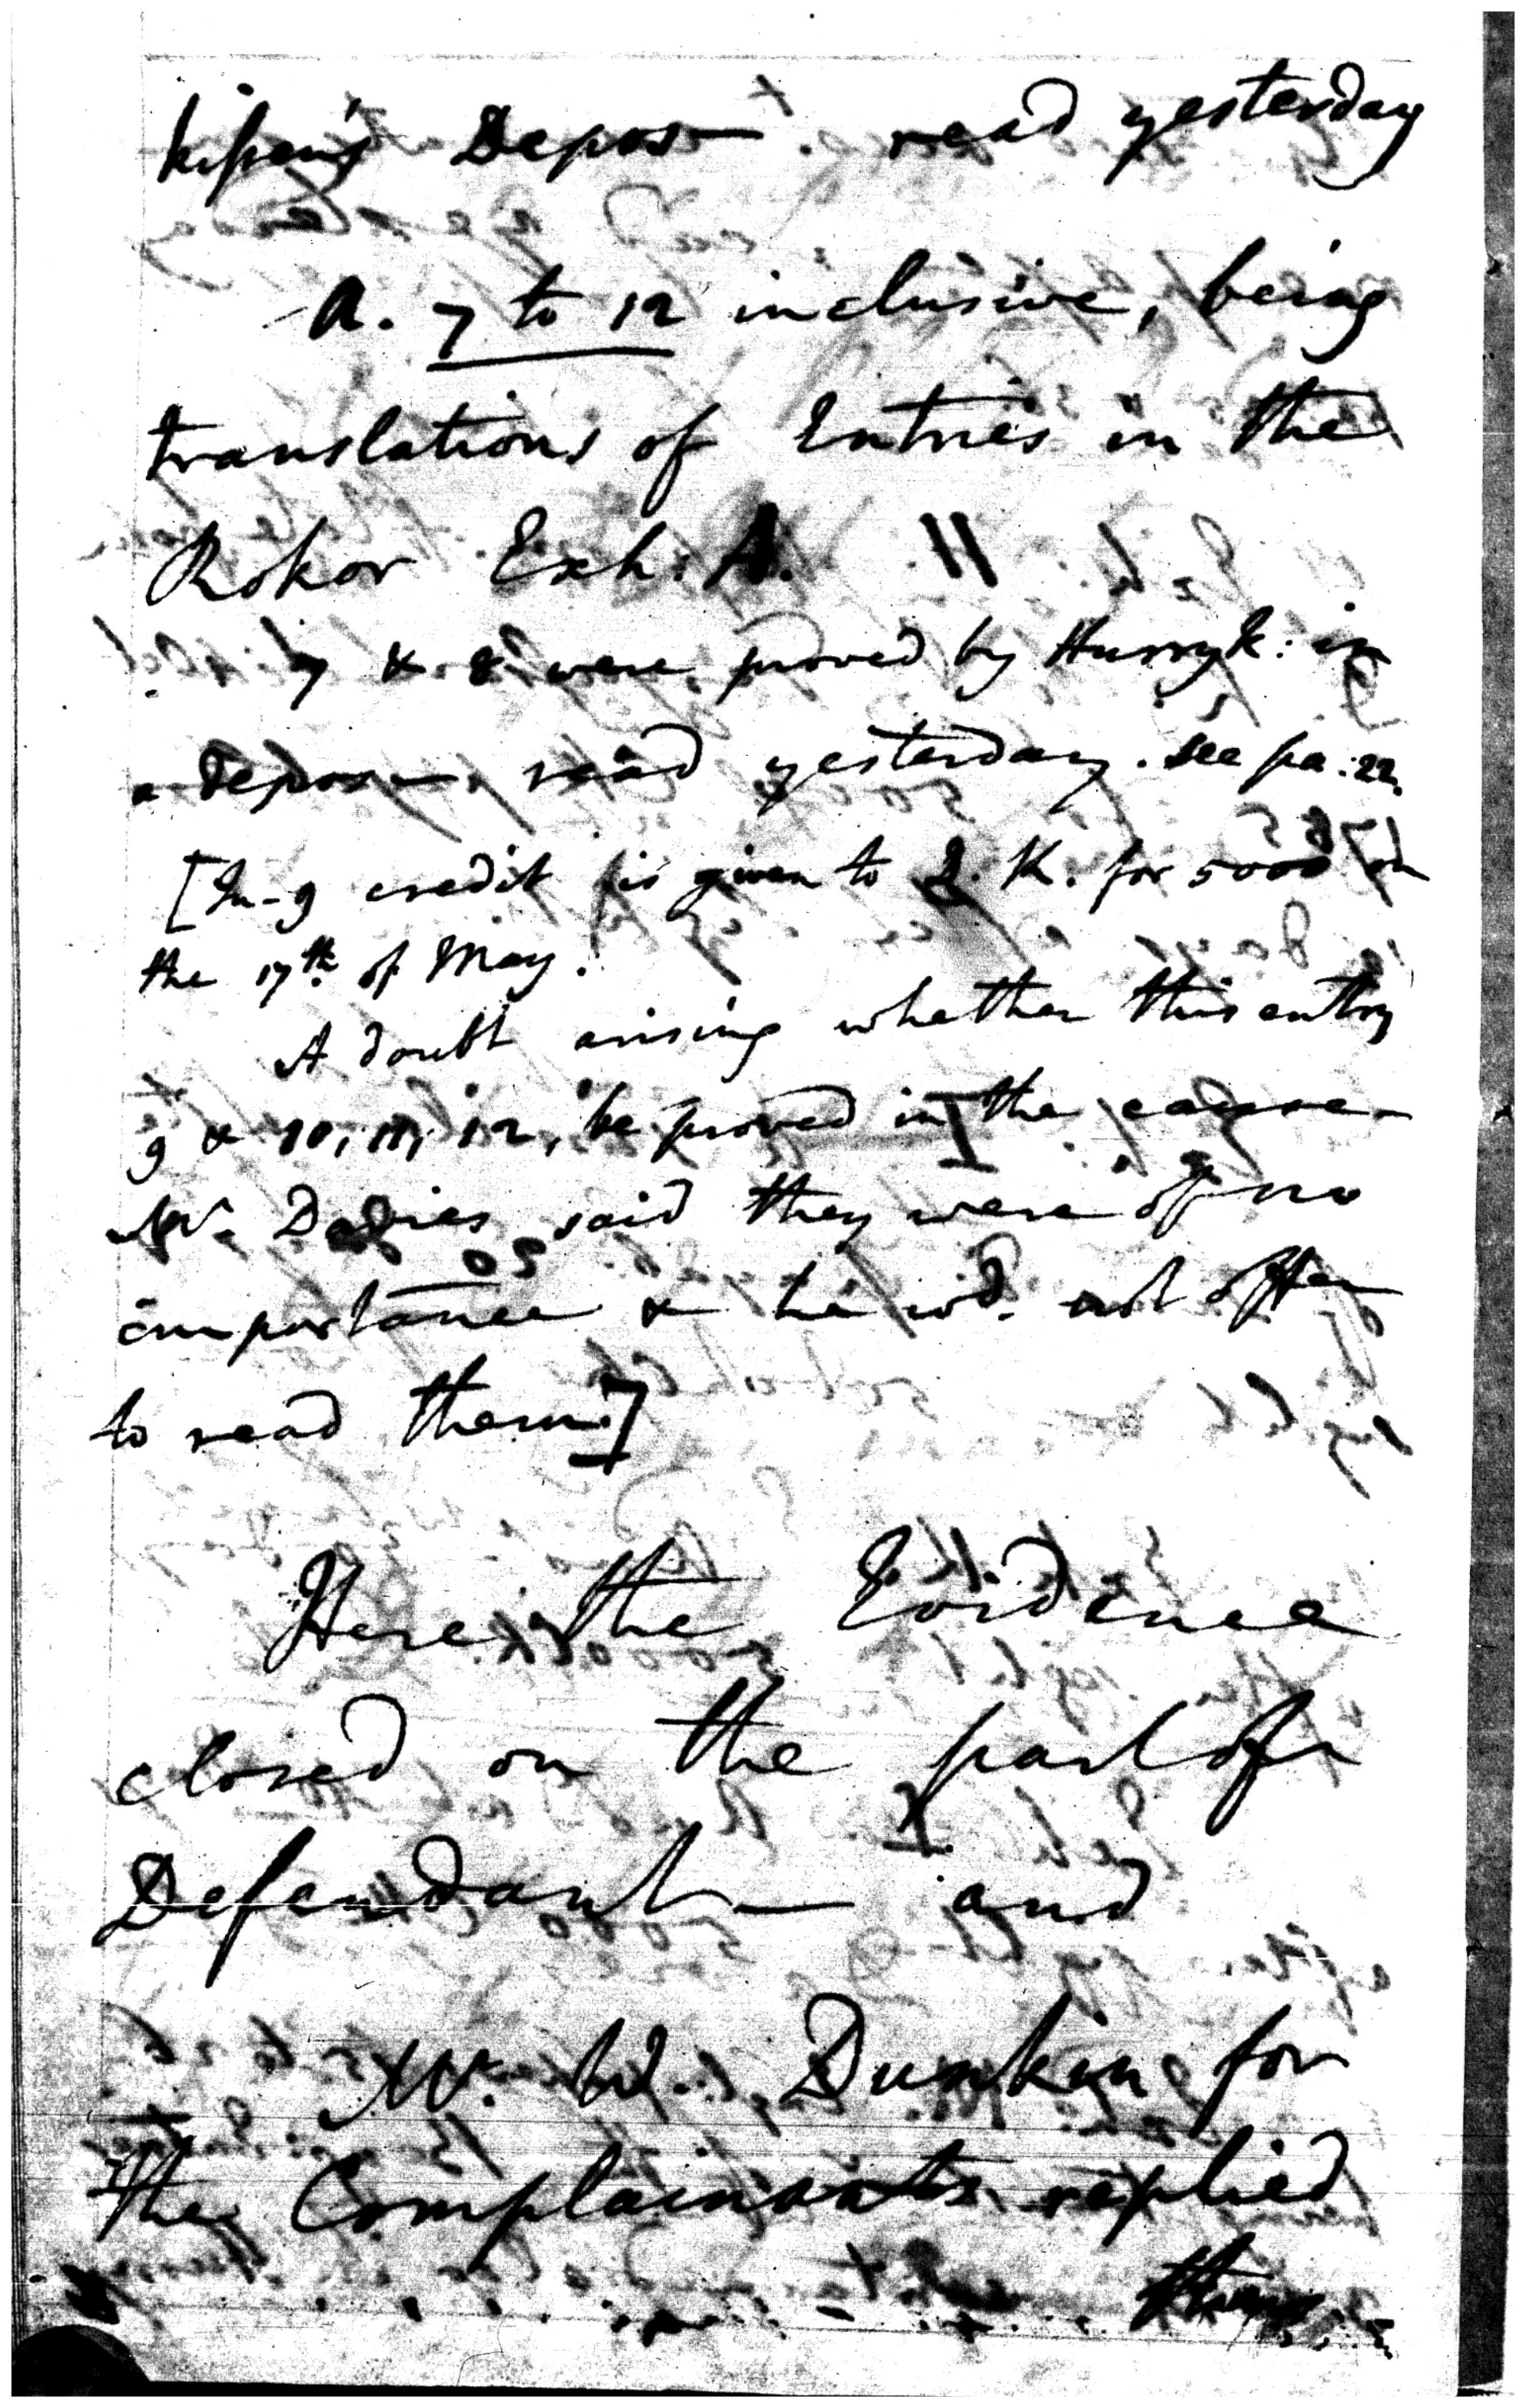 kissen's Depos— read yesterday
A. 7 to 12 inclusive, being
translations of Entries in the
Rokor Exh: A.
7 & 8 were proved by Hurryk: in
a depos—, read yesterday. See pa: 22.
[In-9 credit is given to K. for 5000 on
the 17th of May.
A doubt arising whether this entry
9 & 10, 11, 12, be proved in the cause—
Mr. Davies said they were of no
importance & he wd. not offer
to read them.]
Here the Evidence
closed on the part of
Defendant— and
Mr. W. Dunkin for
the Complainants replied